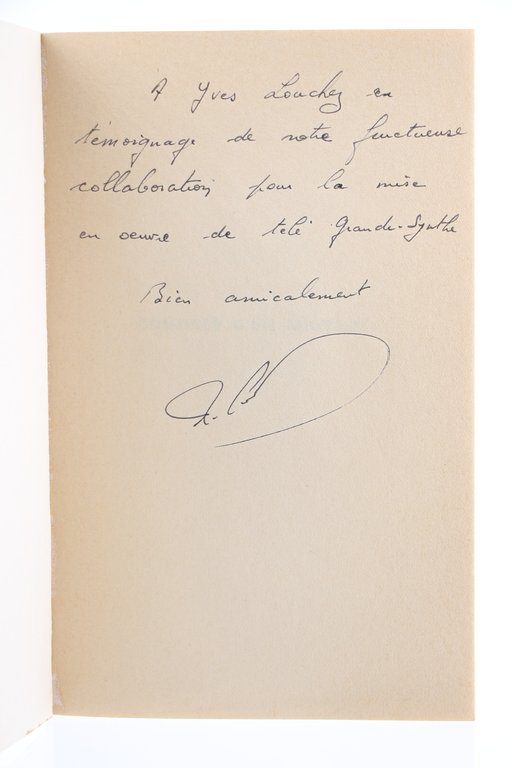 A Yves Louchez en
témoignage de notre fructueuse
collaboration pour la mise
en oeuvre de télé Grande-Synthe
Bien amicalement